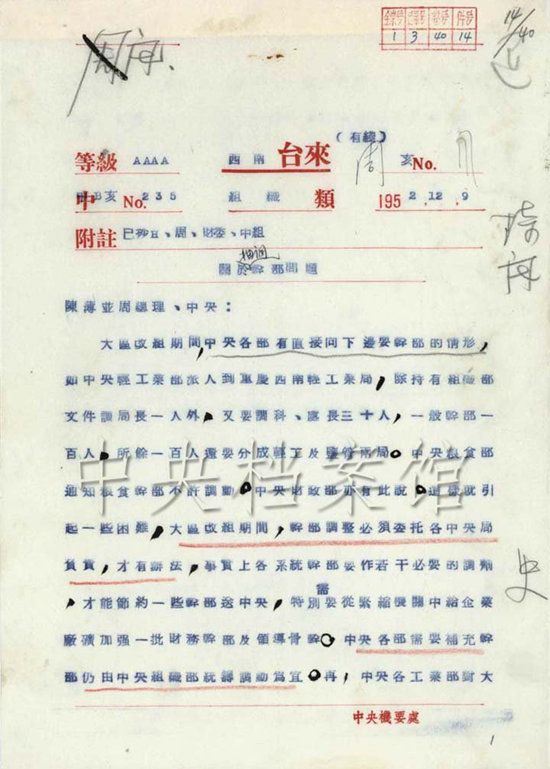 全宗号 件号
1 3 40 14
14/40
周阅.
(有线)
等級 AAAA 西南 台來 周 亥 No.
中 B亥 No. 235 組織 類 1952.12.9
附註 已抄宜、周、財委、中組
抽調
關於幹部問題
陳薄並周總理、中央：
大區改組期間，中央各部有直接向下邊要幹部的情形，
如中央輕工業部派人到重慶西南輕工業局，除持有組織部
文件調局長一人外，又要調科、處長三十人，一般幹部一
百人，所餘一百人還要分成輕工及鹽務兩局。中央糧食部
通知糧食幹部不許調動。中央財政部亦有此說。這樣就引
起一些困難，大區改組期間，幹部調整必須委托各中央局
負責，才有辦法，事實上各系統幹部要作若干必要的調劑
，才能節約一些幹部送中央，特別需要從緊縮機關中給企業
廠礦加強一批財務幹部及領導骨幹。中央各部需要補充幹
部仍由中央組織部統籌調動為宜。再，中央各工業部對大
中央档案馆
史
中央機要處
1